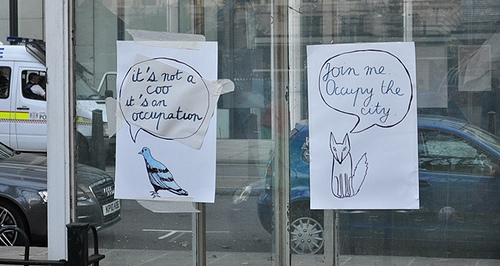 it's not a
coo
it's an
occupation
Join me.
Occupy the
city